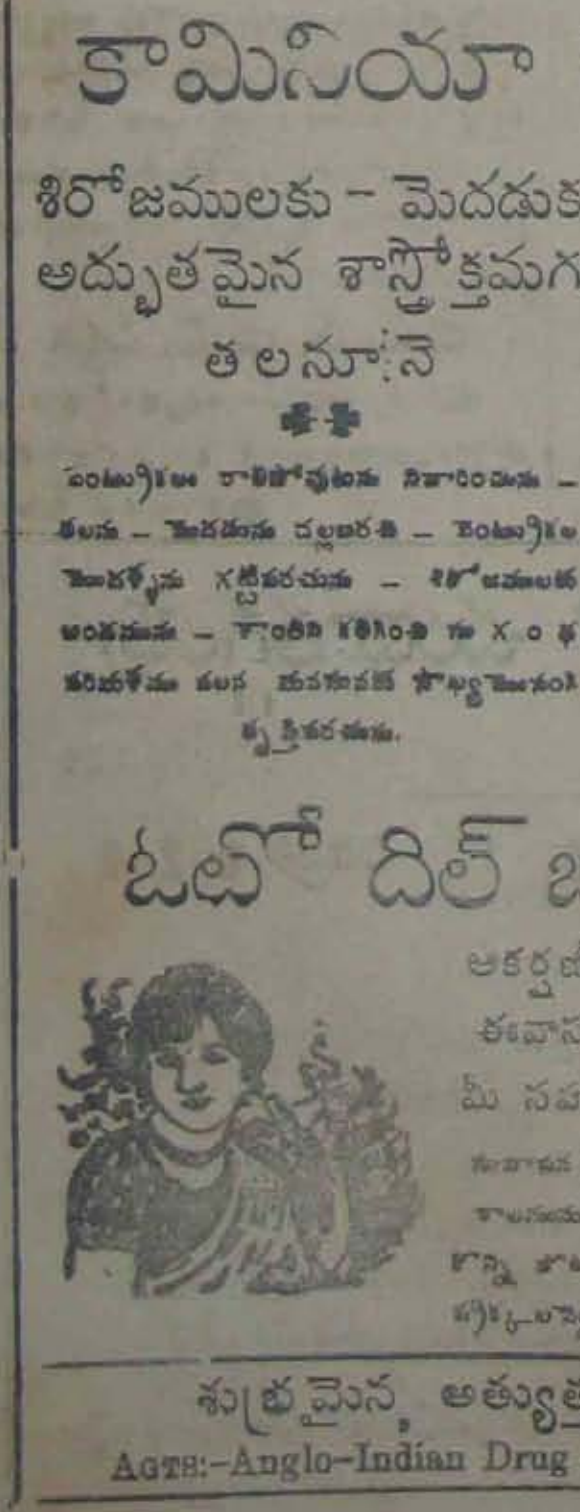 కామినియా
శిరోజములకు - మెదడుక
అద్భుతమైన శాస్త్రోక్తమగ
తలనూనె
వెంట్రుకలు రాలిపోవుటను నివారించును -
తలను - మెదడును చల్లబరచి - వెంట్రుకల
మొదళ్ళను గట్టిపరచును - శిరోజములకు
అందమును - కాంతిని కలిగించి సుగంధ
పరిమళము వలన మనస్సునకు సౌఖ్య
తృప్తిపరచును.
ఓటో దిల్ బ
ఆకర్షణీ
ఈవాస
మీ సహ
కొన్ని
శుభ్రమైన, అత్యుత్త
AGTS:-Anglo-Indian Drug